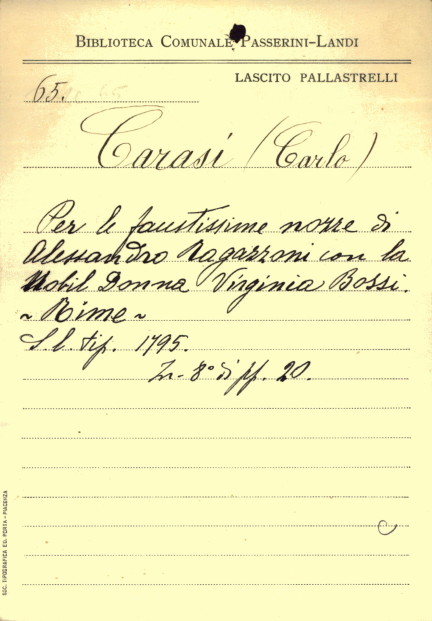 BIBLIOTECA COMUNALE PASSERINI-LANDI
LASCITO PALLASTRELLI
65.
Carasi (Carlo)
Per le faustissime nozze di
Alessandro Ragazzoni con la
Nobil Donna Virginia Bossi.
~ Rime ~
S. l. tip. 1795.
In-8° di pp. 20.
SOC. TIPOGRAFICA ED. PORTA - PIACENZA